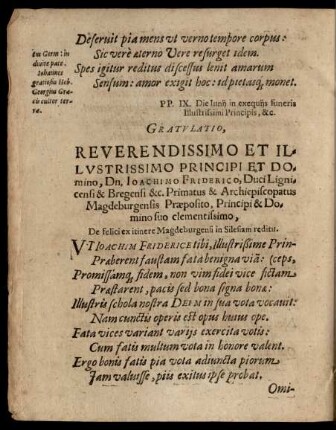 Deseruit pia mens vt verno tempore corpus:
Sic verè æterno Vere resurget idem.
Spes igitur reditus discessus lenit amarum
Sensum: amor exigit hoc: id pietasq́, monet.
divite pace.
Iohannes
gratiosus
Georgius
cultor ter-
ræ.
PP. IX. Die Iunij in exequijs funeris
Illustrissimi Principis, &c.
GRATVLATIO,
REVERENDISSIMO ET IL-
LVSTRISSIMO PRINCIPI ET DO-
mino, Dn. IOACHIMO FRIDERICO, Duci Ligni-
censi & Bregensi &c. Primatus & Archiepiscopatus
Magdeburgensis Præposito, Principi & Do-
mino suo clementissimo,
De felici ex itinere Magdeburgensi in Silesiam reditu.
VT IOACHIM FRIDERICE tibi, illustrissime Prin-
Præberent faustam fata benigna viã: (ceps,
Promissamq́, fidem, non vim fidei vice fictam
Præstarent, pacis sed bona signa bonæ:
Illustris schola nostra DEVM in sua vota vocavit:
Nam cunctis operis est opus huius ope.
Fata vices variant varijs exercita votis:
Cum fatis multum vota in honore valent.
Ergo bonis fatis pia vota adiuncta piorum
Jam valuisse, piis exitus ipse probat.
Omi-